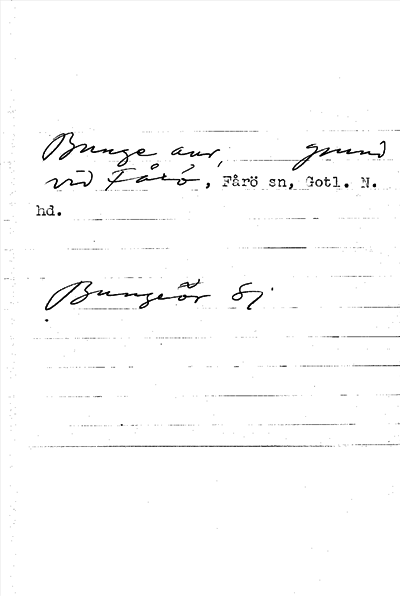 Bunge aur, grund
vid Fårö, Fårö sn, Gotl. N.
hd.
Bungeör Sj